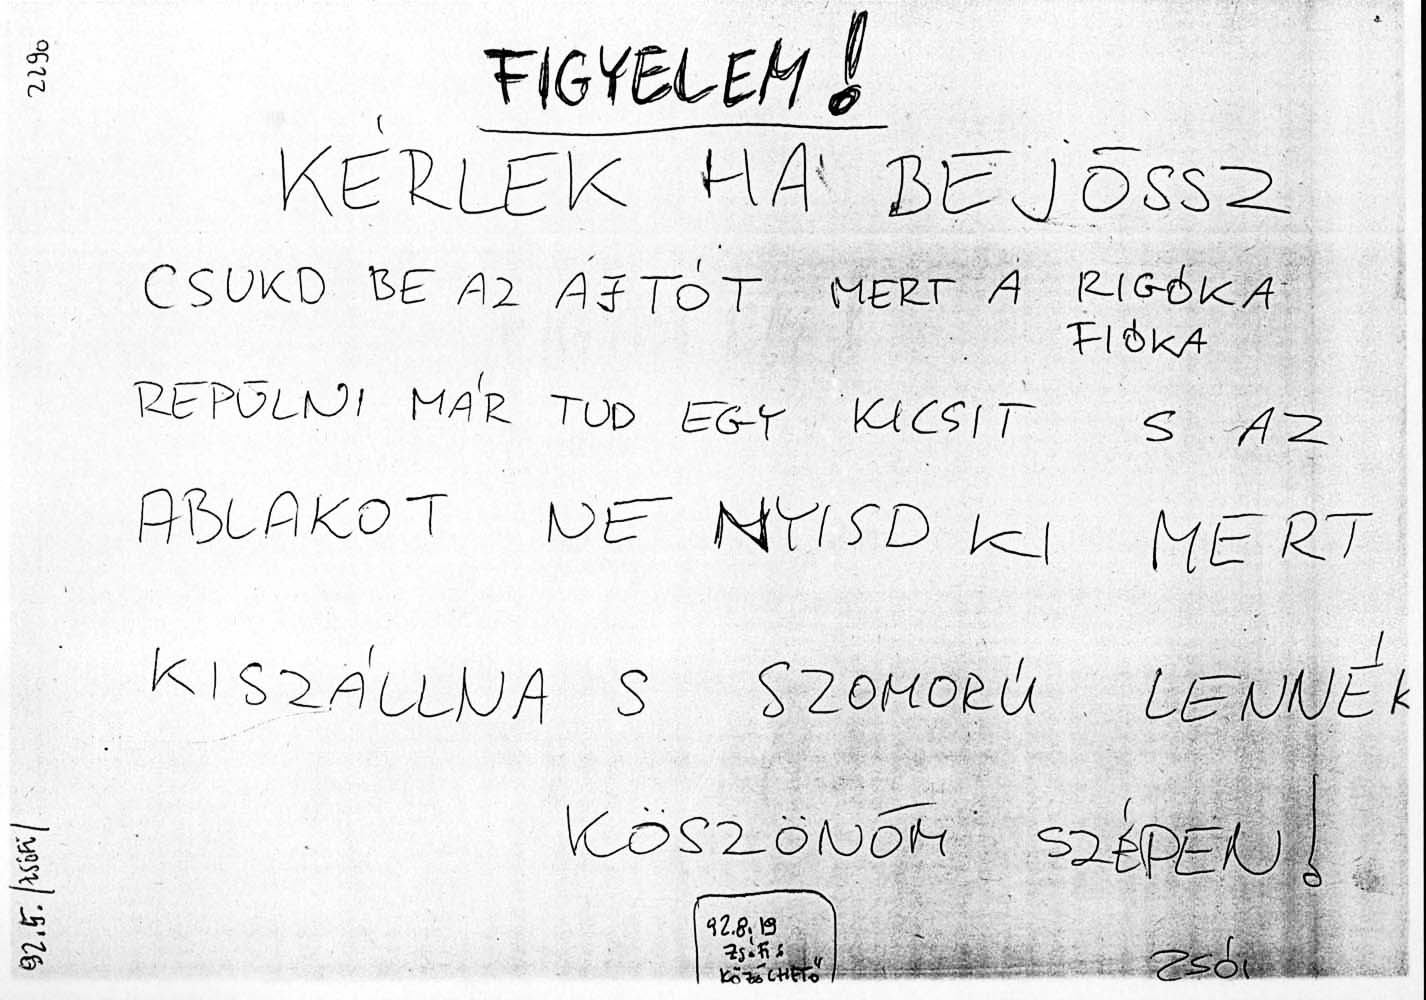 2290
FIGYELEM!
KÉRLEK HA BEJÖSSZ
CSUKD BE AZ AJTÓT MERT A RIGÓKA
FIÓKA
REPÜLNI MÁR TUD EGY KICSIT S AZ
ABLAKOT NE NYISD KI MERT
KISZÁLLNA S SZOMORÚ LENNÉK
KÖSZÖNÖM SZÉPEN!
ZSÓI
92.8.19
92.15. /ZSÓFI/